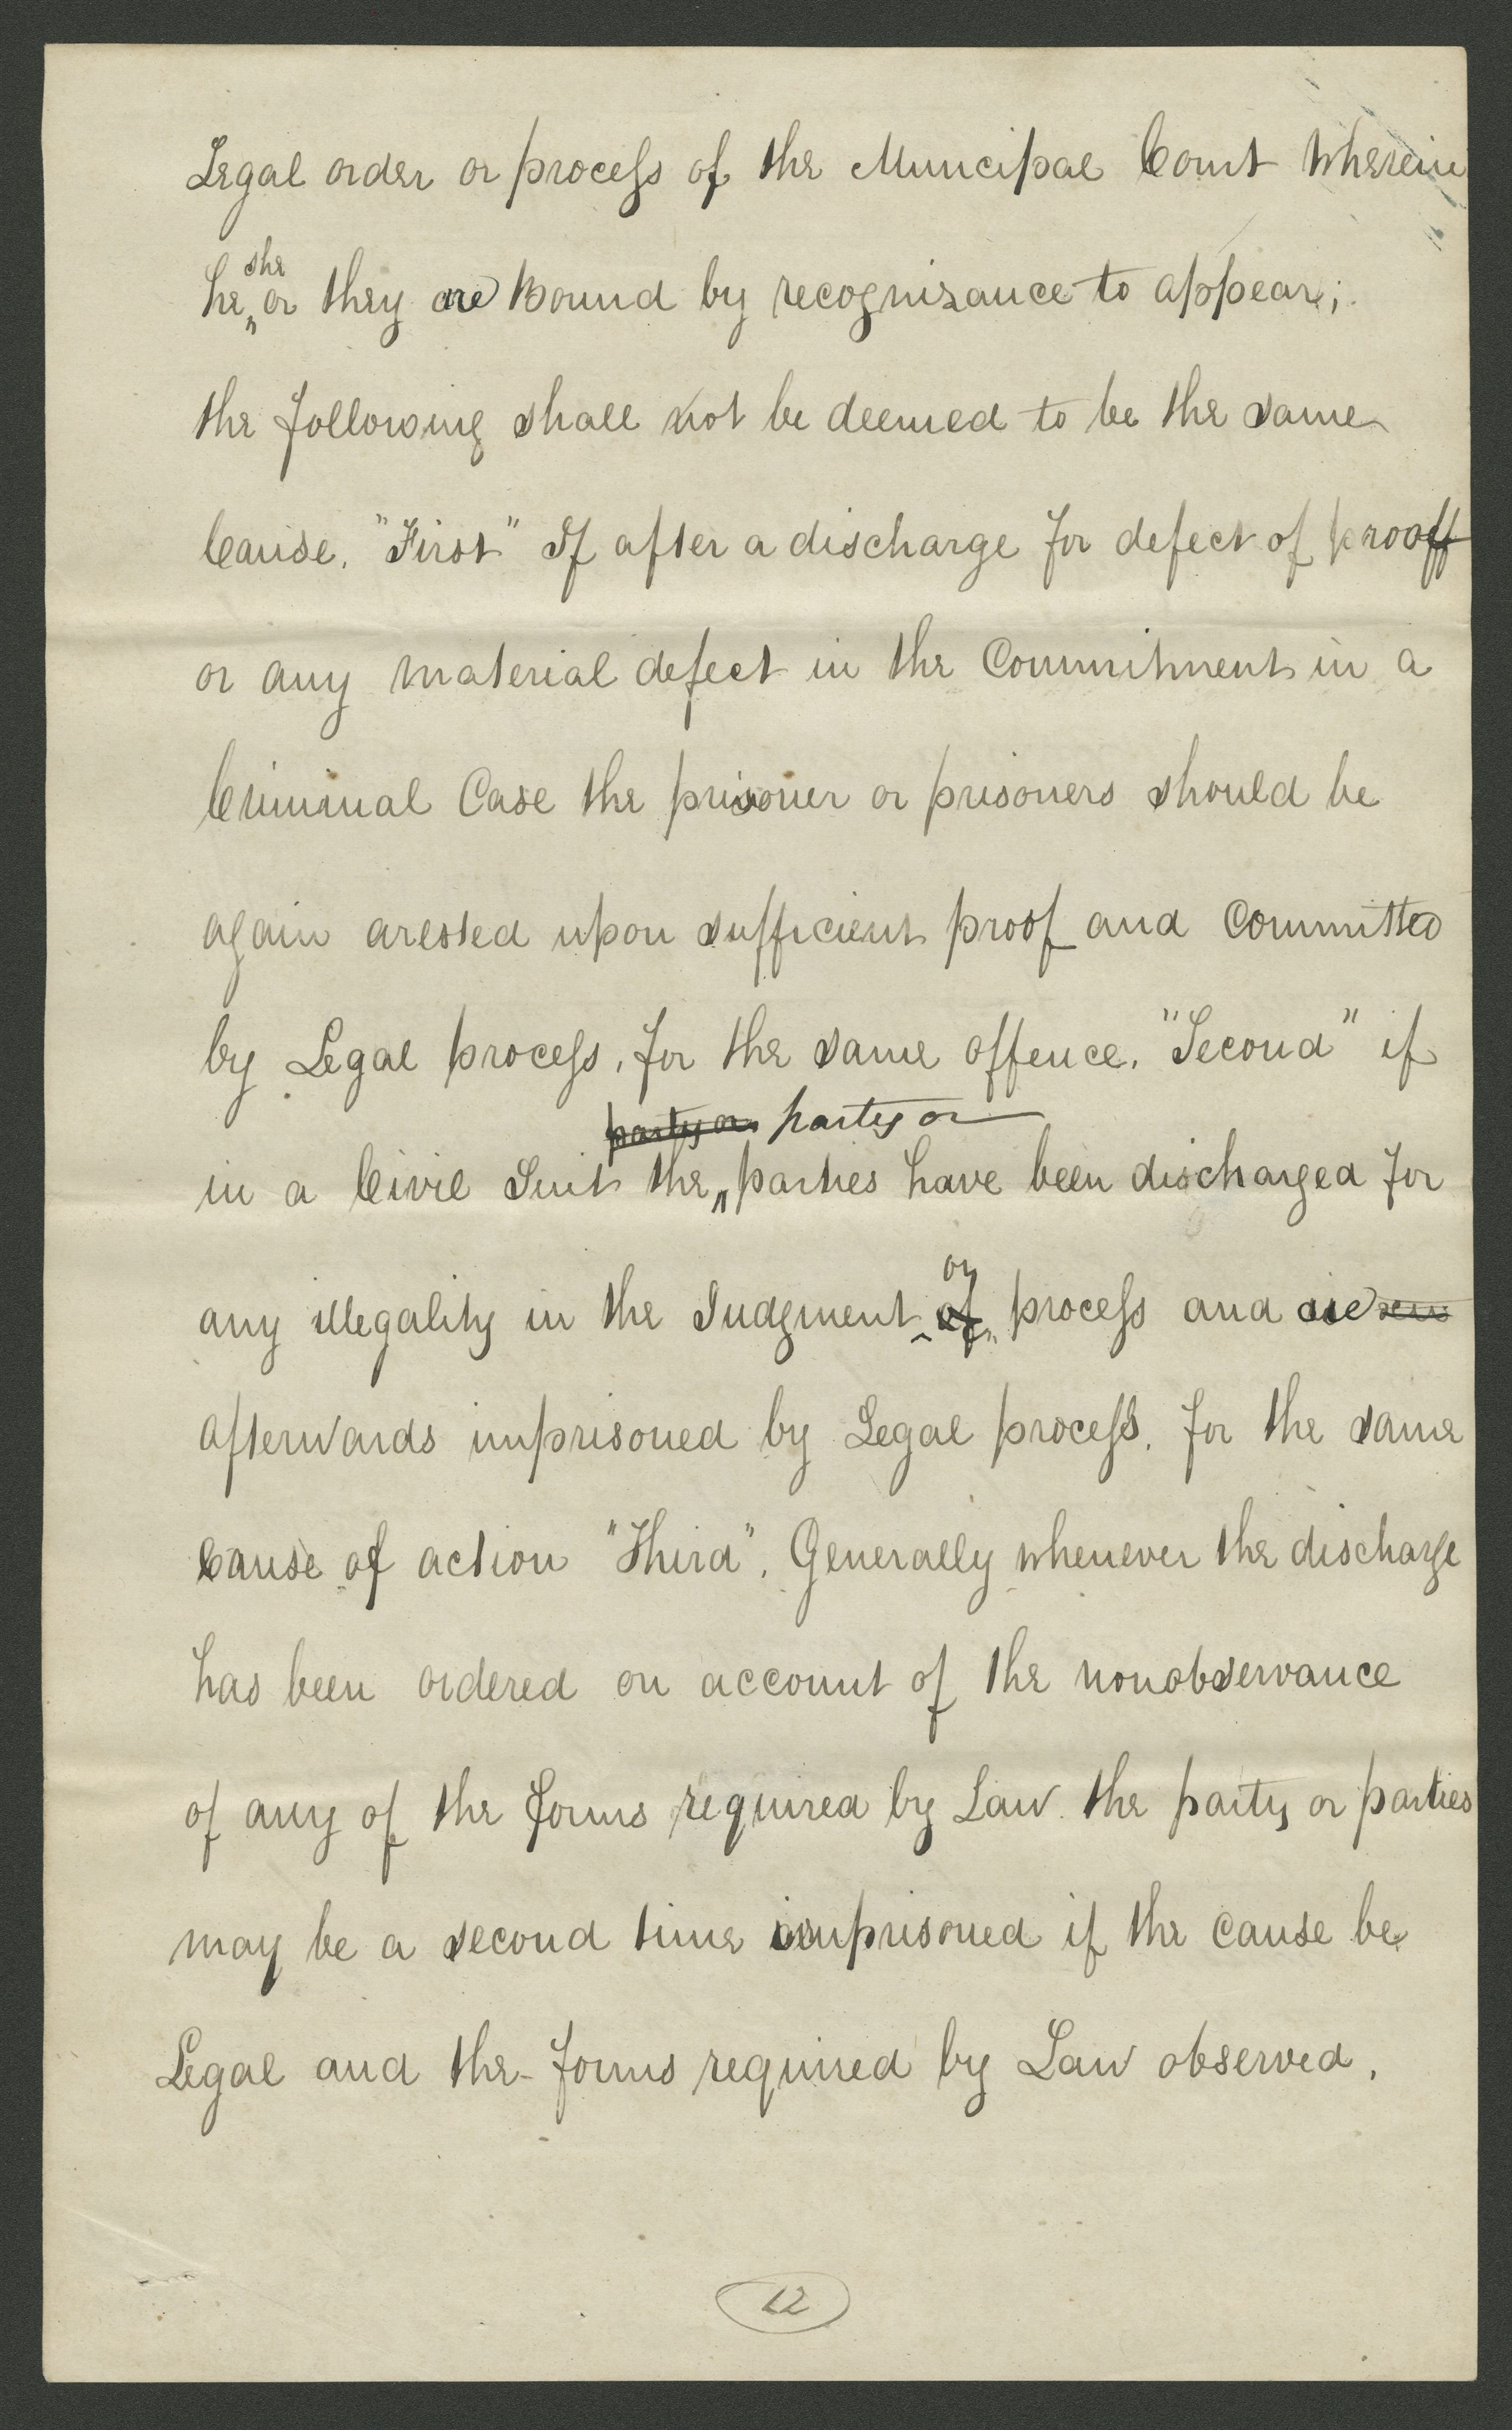 Legal order or process of the Muncipal Court wherein
she
he or they are Bound by recognisance to appear;
the following shall not be deemed to be the same
Cause. "First" If after a discharge for defect of prooff
or any material defect in the Commitment in a
Criminal Case the prisoner or prisoners should be
again aressed upon sufficient proof and Committed
by Legal process, for the same offence. "Second" if
party or party or
in a Civil Suit the parties have been discharged for
or
any illegality in the Judgment of process and are
afterwards imprisoned by Legal process. for the same
Cause of action "Third". Generally whenever the discharge
has been ordered on account of the nonobservance
of any of the forms required by Law. the party or parties
may be a second time imprisoned if the cause be
Legal and the forms required by Law observed.
12